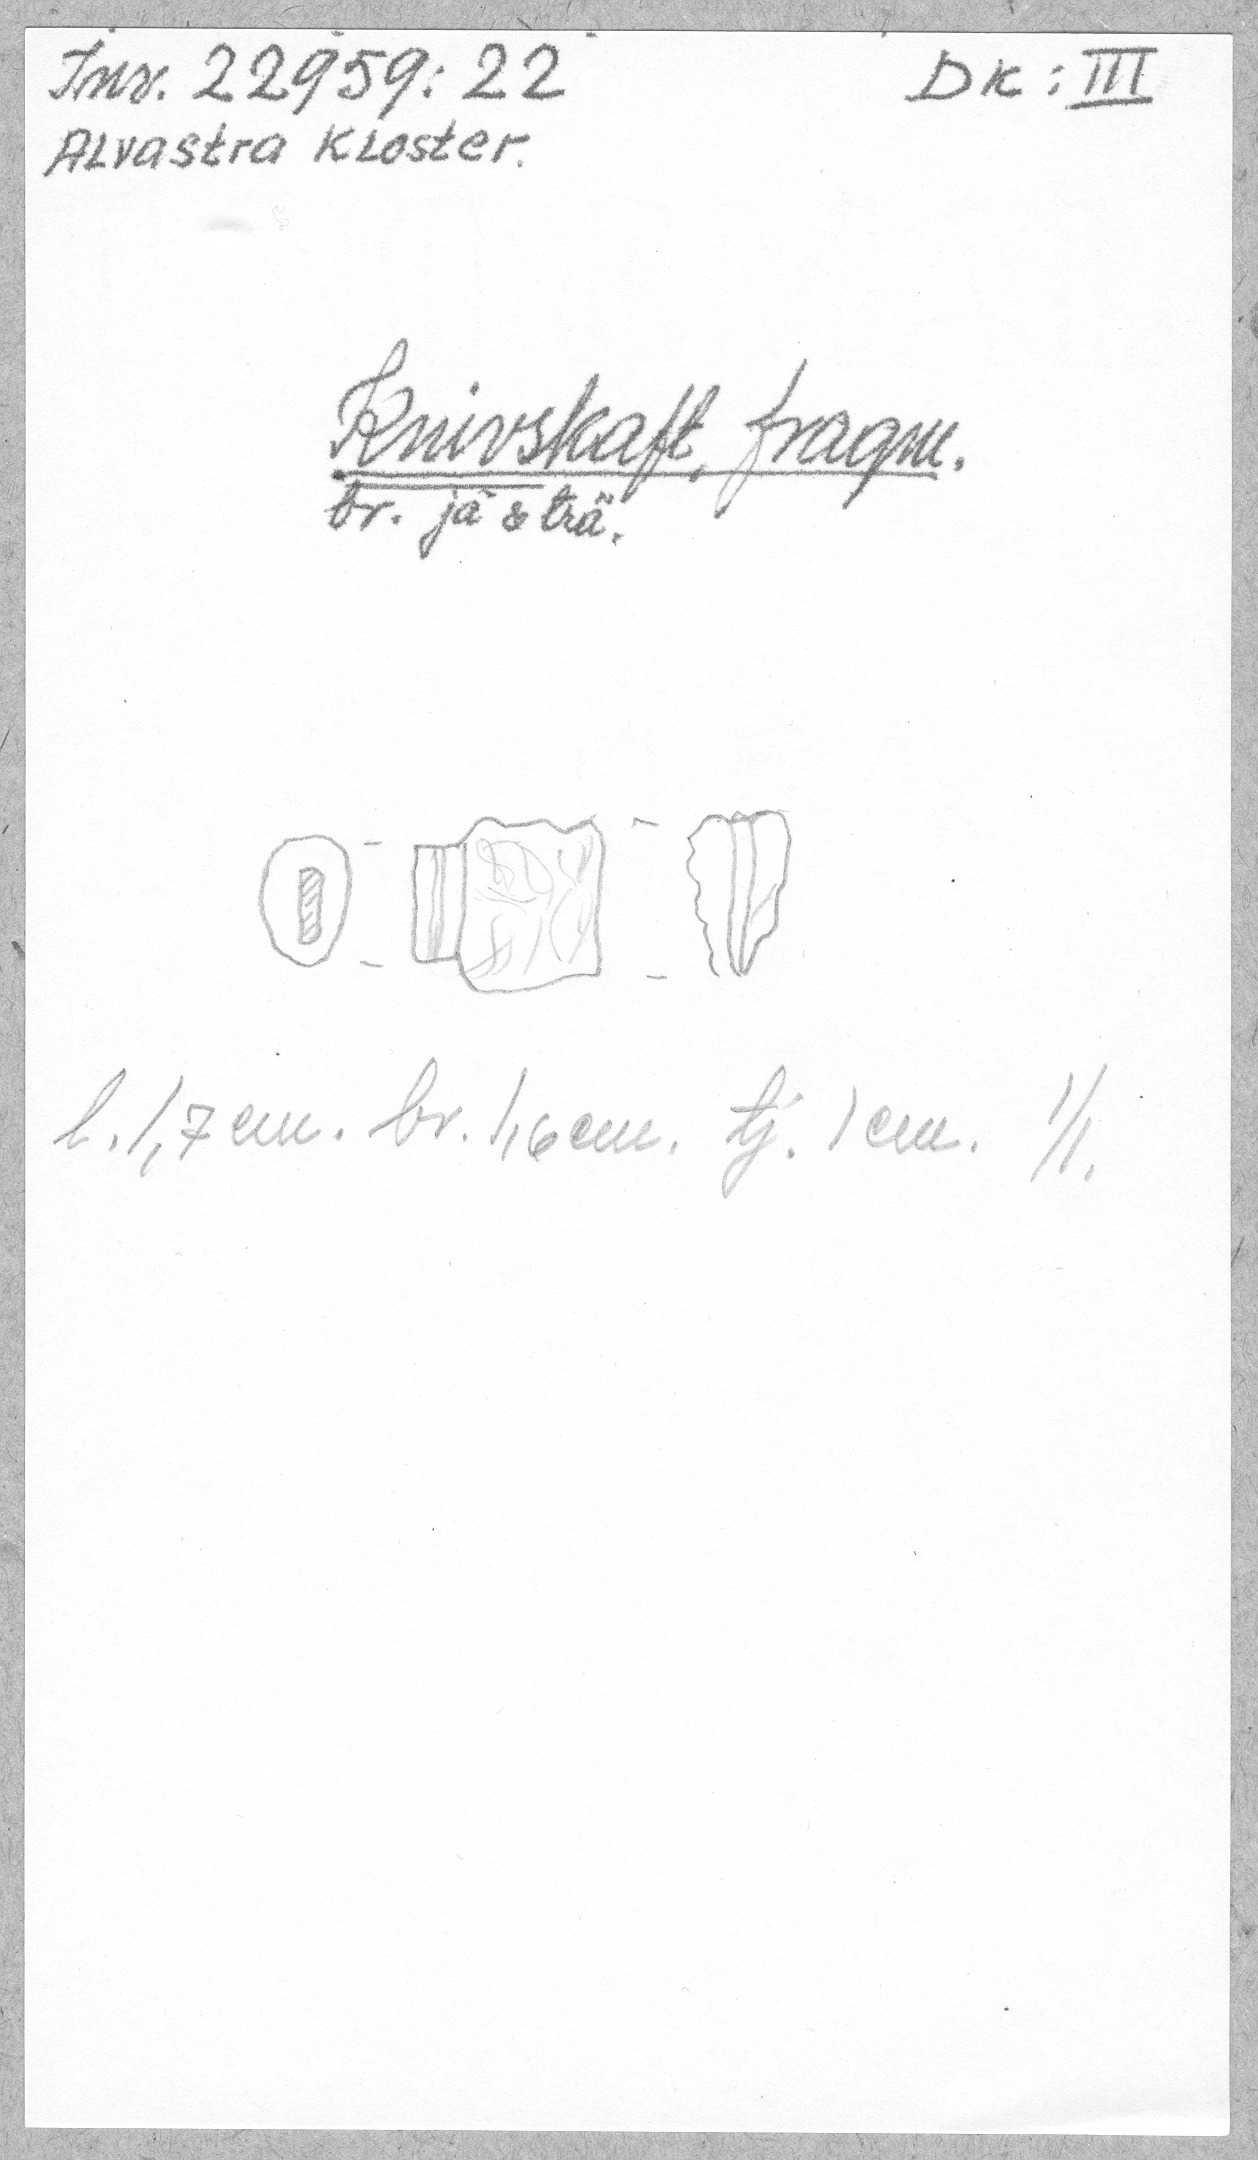 Inv. 22959:22
DK: III
Alvastra Kloster.
Knivskaft, fragm.
br. jä & trä.
l. 1,7 cm. br. 1,6 cm. tj. 1 cm. 1/1.